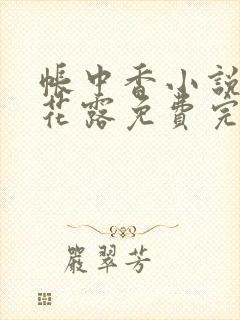 帳中香小說
花露免費完
嚴翠芳